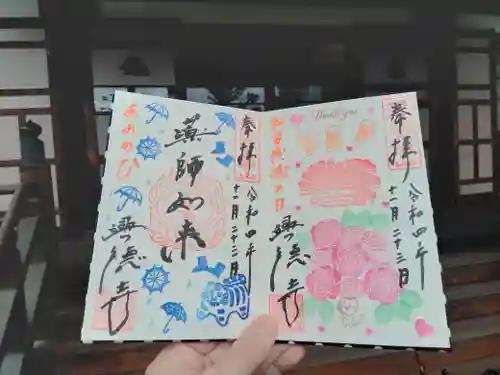 奉拝
令和四年
十一月二十三日
Thank you
興徳寺
奉拝
令和四年
十一月二十二日
薬師如来
あめのひ
興徳寺